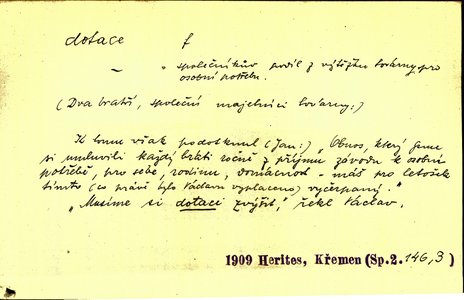 dotace f
– „ společníkův podíl z výtěžku továrny pro
osobní potřebu.
(Dva bratři, společní majetníci továrny:)
K tomu však podotknul (Jan:) „Obnos, který jsme
si umluvili každý bráti ročně z příjmu závodu k osobní
potřebě, pro sebe, rodinu, domácnost – máš pro letošek
tímto (co právě bylo Václavu vyplaceno) vyčerpaný.“
„Musíme si dotaci zvýšit,“ řekl Václav.
1909 Herites, Křemen (Sp.2. 146,3)